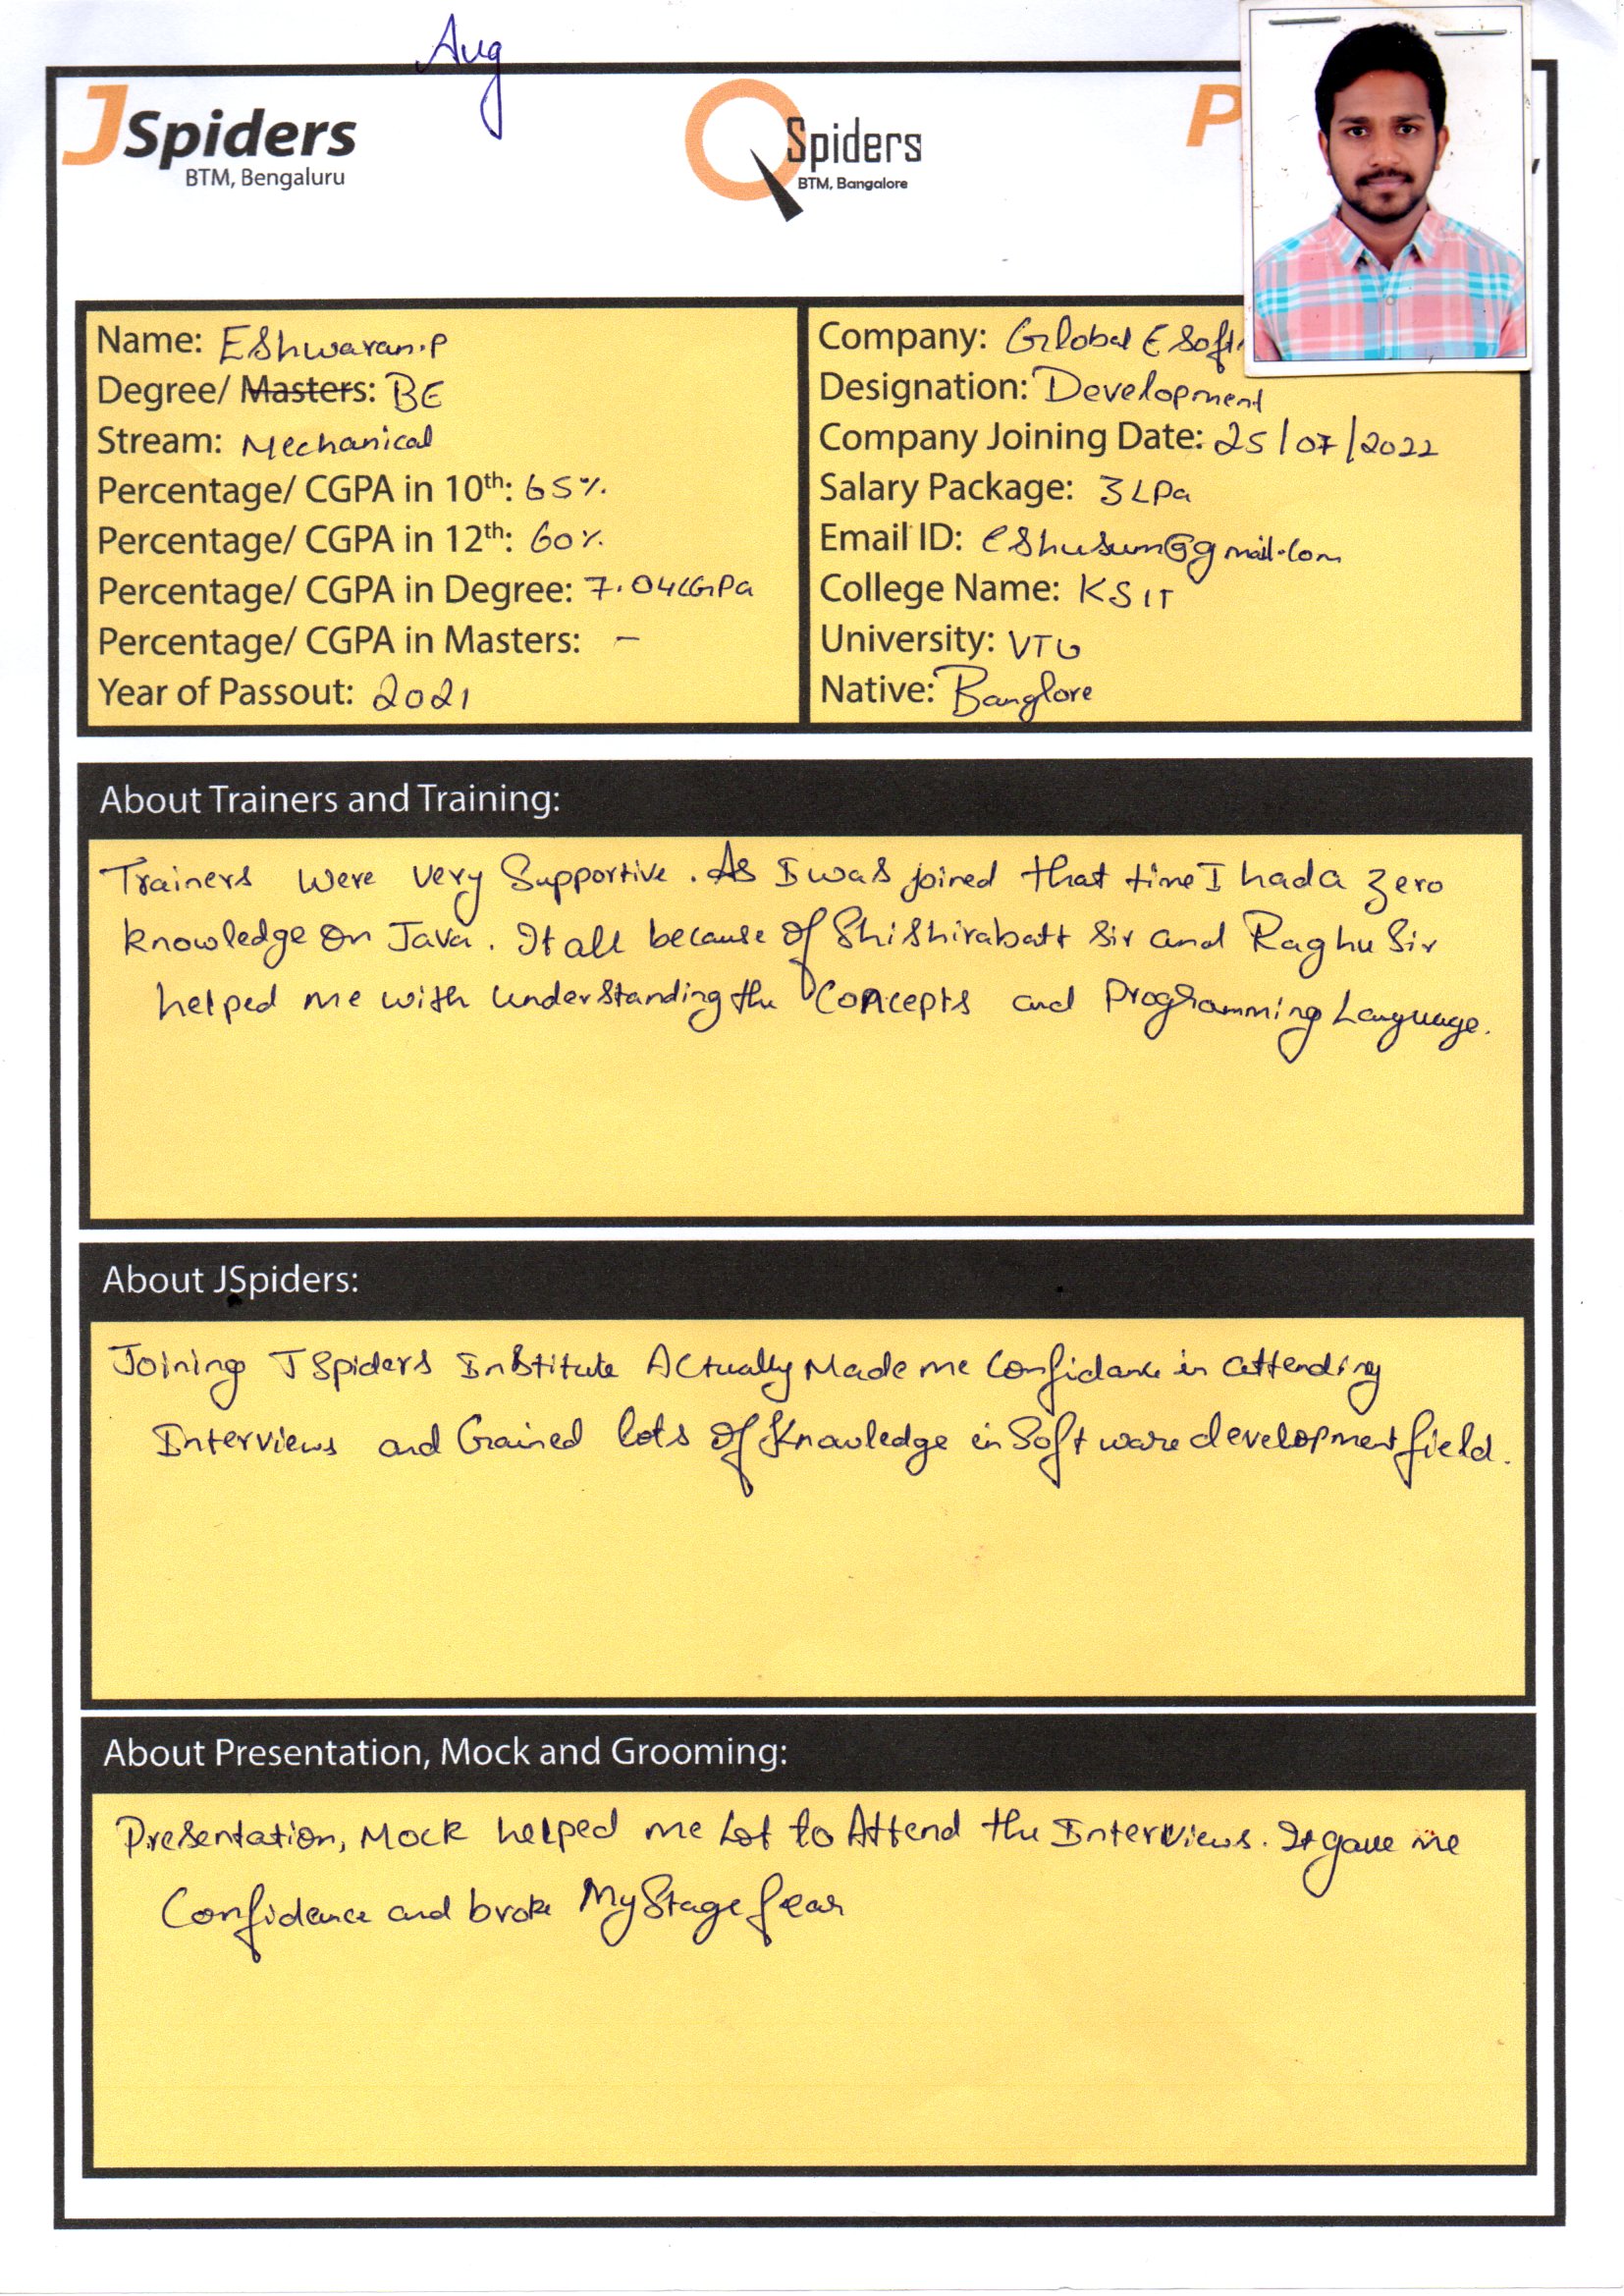 Aug
JSpiders
BTM, Bengaluru
QSpiders
BTM, Bangalore
P
Name: EShwaran.P
Degree/ Masters: BE
Stream: Mechanical
Percentage/ CGPA in 10th: 65%
Percentage/ CGPA in 12th: 60%
Percentage/ CGPA in Degree: 7.04CGPa
Percentage/ CGPA in Masters: -
Year of Passout: 2021
Company: Global E Soft
Designation: Development
Company Joining Date: 25/07/2022
Salary Package: 3 LPa
Email ID: eshusum@gmail.com
College Name: KSIT
University: VTU
Native: Banglore
About Trainers and Training:
Trainers were very Supportive. As I was joined that time I had a zero
knowledge on Java. It all because of Shishirabatt Sir and Raghu Sir
helped me with understanding the concepts and Programming Language.
About JSpiders:
Joining JSpiders Institute Actually Made me Confidance in attending
Interviews and Gained lots of Knowledge in Software development field.
About Presentation, Mock and Grooming:
Presentation, Mock helped me Lot to Attend the Interviews. It gave me
Confidance and broke My Stage fear